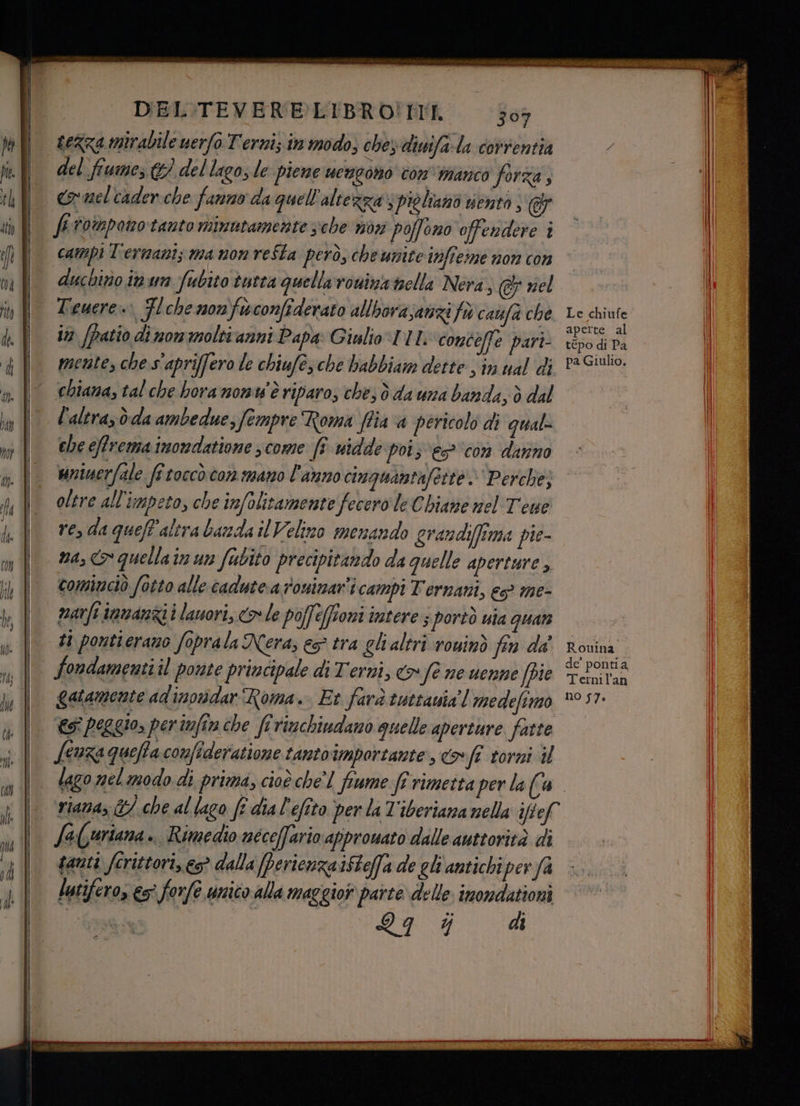 DEL TEVERE LIBRO III. 307
tezza mirabile uerſo Terni; in modo, che, diuiſa la correntia
del fiume, & del lago, le piene uengono con manco forza,
& nel cader che fanno da quell'altezza, pigliano uento, &
ſi rompono tanto minutamente, che non poſſono offendere i
campi Ternani; ma non reſta però, che unite inſieme non con
duchino in un ſubito tutta quella rouina nella Nera, & nel
Teuere. Il che non fù conſiderato allhora, anzi fù cauſa che
in ſpatio di non molti anni Papa Giulio III. conceſſe pari-
mente, che s'apriſſero le chiuſe, che habbiam dette, in ual di
chiana, tal che hora non u'è riparo, che, ò da una banda, ò dal
l'altra, ò da ambedue, ſempre Roma ſtia a pericolo di qual-
che eſtrema inondatione, come ſi uidde poi, & con danno
uniuerſale ſi toccò con mano l'anno cinquantaſette. Perche,
oltre all'impeto, che inſolitamente fecero le Chiane nel Teue
re, da queſt'altra banda il Velino menando grandiſſima pie-
na, & quella in un ſubito precipitando da quelle aperture,
cominciò ſotto alle cadute a rouinar'i campi Ternani, & me-
narſi innanzi i lauori, & le poſſeſſioni intere; portò uia quan
ti ponti erano ſopra la Nera, & tra gli altri rouinò fin da'
fondamenti il ponte principale di Terni, & ſe ne uenne ſpie
gatamente ad inondar Roma. Et farà tuttauia'l medeſimo
& peggio, per inſin che ſi rinchiudano quelle aperture fatte
ſenza queſta conſideratione tanto importante, & ſi torni il
lago nel modo di prima, cioè che'l fiume ſi rimetta per la Cu
riana, & che al lago ſi dia l'eſito per la Tiberiana nella iſteſ
ſa Curiana. Rimedio neceſſario approuato dalle auttorità di
tanti ſcrittori, & dalla ſperienza iſteſſa de gli antichi per ſa
lutifero, & forſe unico alla maggior parte delle inondationi
Qq ij di
Le chiuſe
aperte al
tēpo di Pa
pa Giulio.
Rouina
de' ponti a
Terni l'an
no 57.